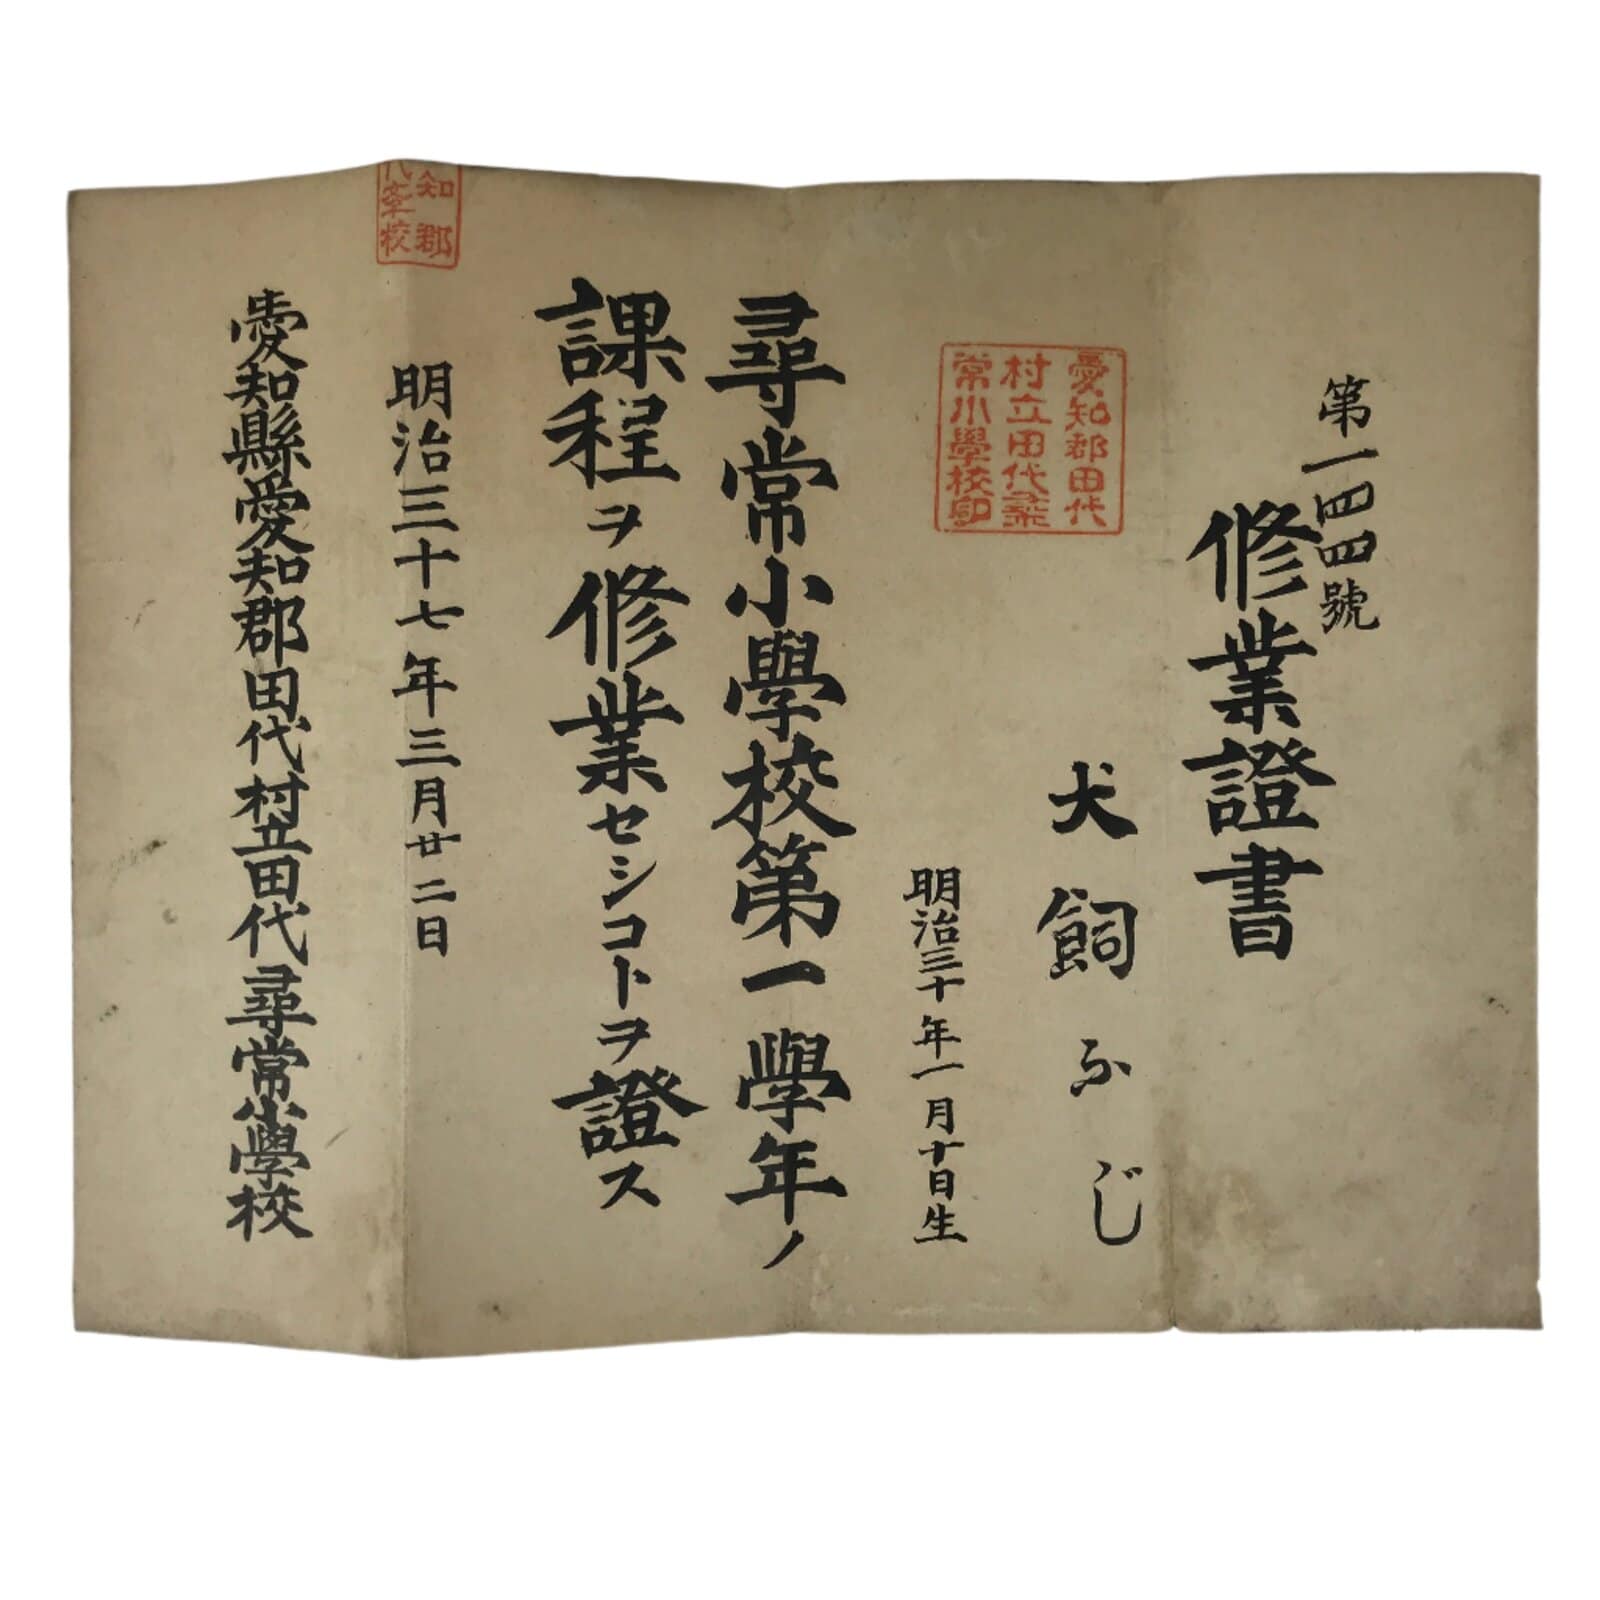 第一四四號
修業證書
犬飼ふじ
明治三十年一月十日生
愛知郡田代
村立田代尋
常小學校印
尋常小學校第一學年ノ
課程ヲ修業セシコトヲ證ス
明治三十七年三月廿二日
知郡
代尋
校
愛知縣愛知郡田代村立田代尋常小學校